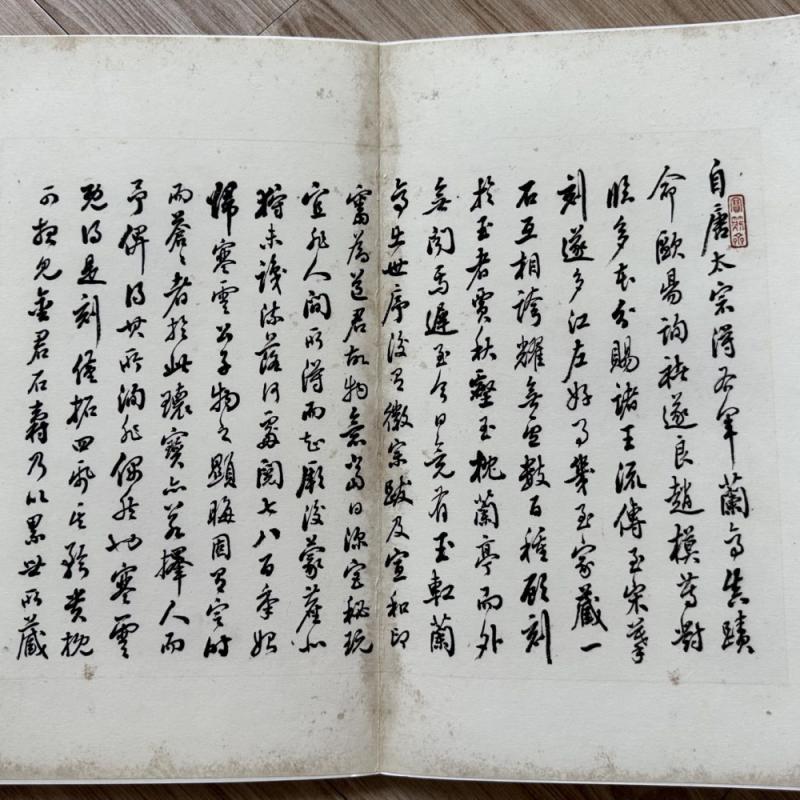 自唐太宗得右軍蘭亭真蹟
命歐陽詢褚遂良趙模等對
臨多本分賜諸王流傳至宋摹
刻遂多江左好事幾至家藏一
石互相誇耀無慮數百種顧刻
於玉者賈秋壑玉枕蘭亭而外
無聞焉遲至今日竟有玉版蘭
亭出世序後有徽宗跋及宣和印
審為道君故物意當日深宮秘玩
宜非人間所得而知厥後蒙塵北
狩未識流落何處閱七八百年始
歸寒雲公子物之顯晦固有定時
而蒼蒼者於此瓌寶亦若擇人而
予俾得其所洵非偶然也寒雲
既得是刻僅拓四紙其矜貴概
可想見金君石壽乃以累世所藏